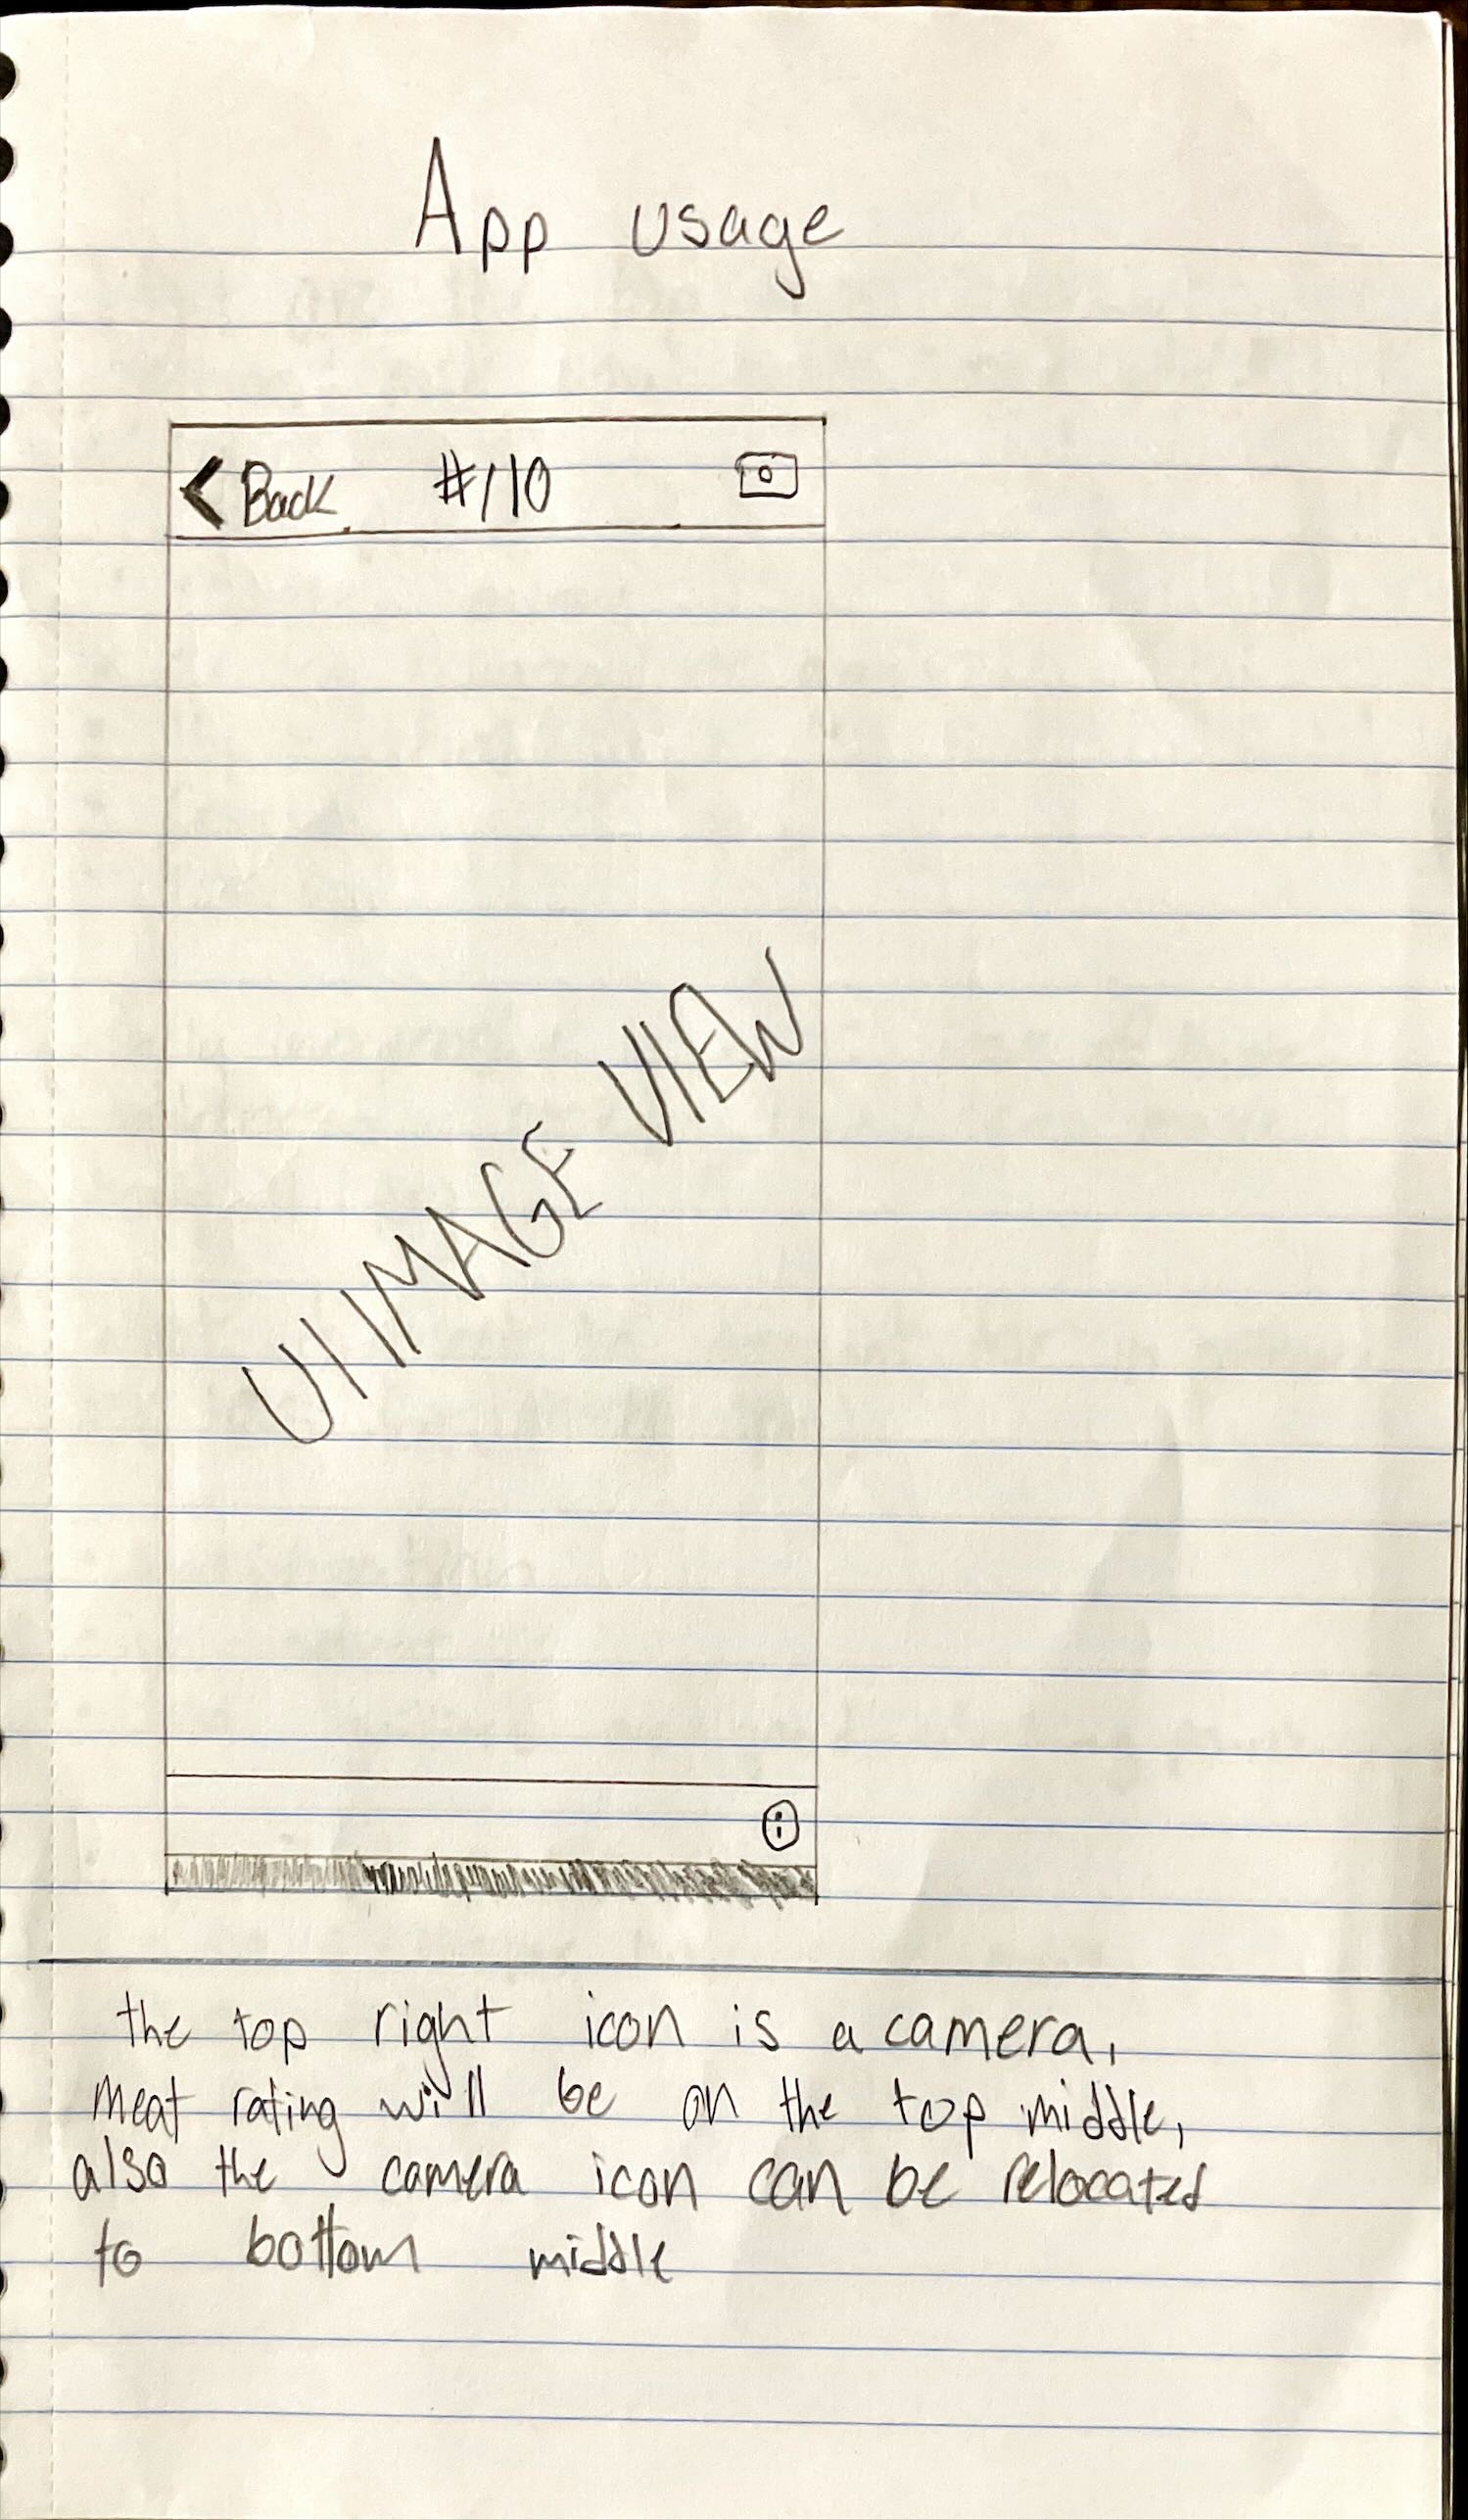 App usage
< Back #/10
UI IMAGE VIEW
the top right icon is a camera,
meat rating will be on the top middle,
also the camera icon can be relocated
to bottom middle